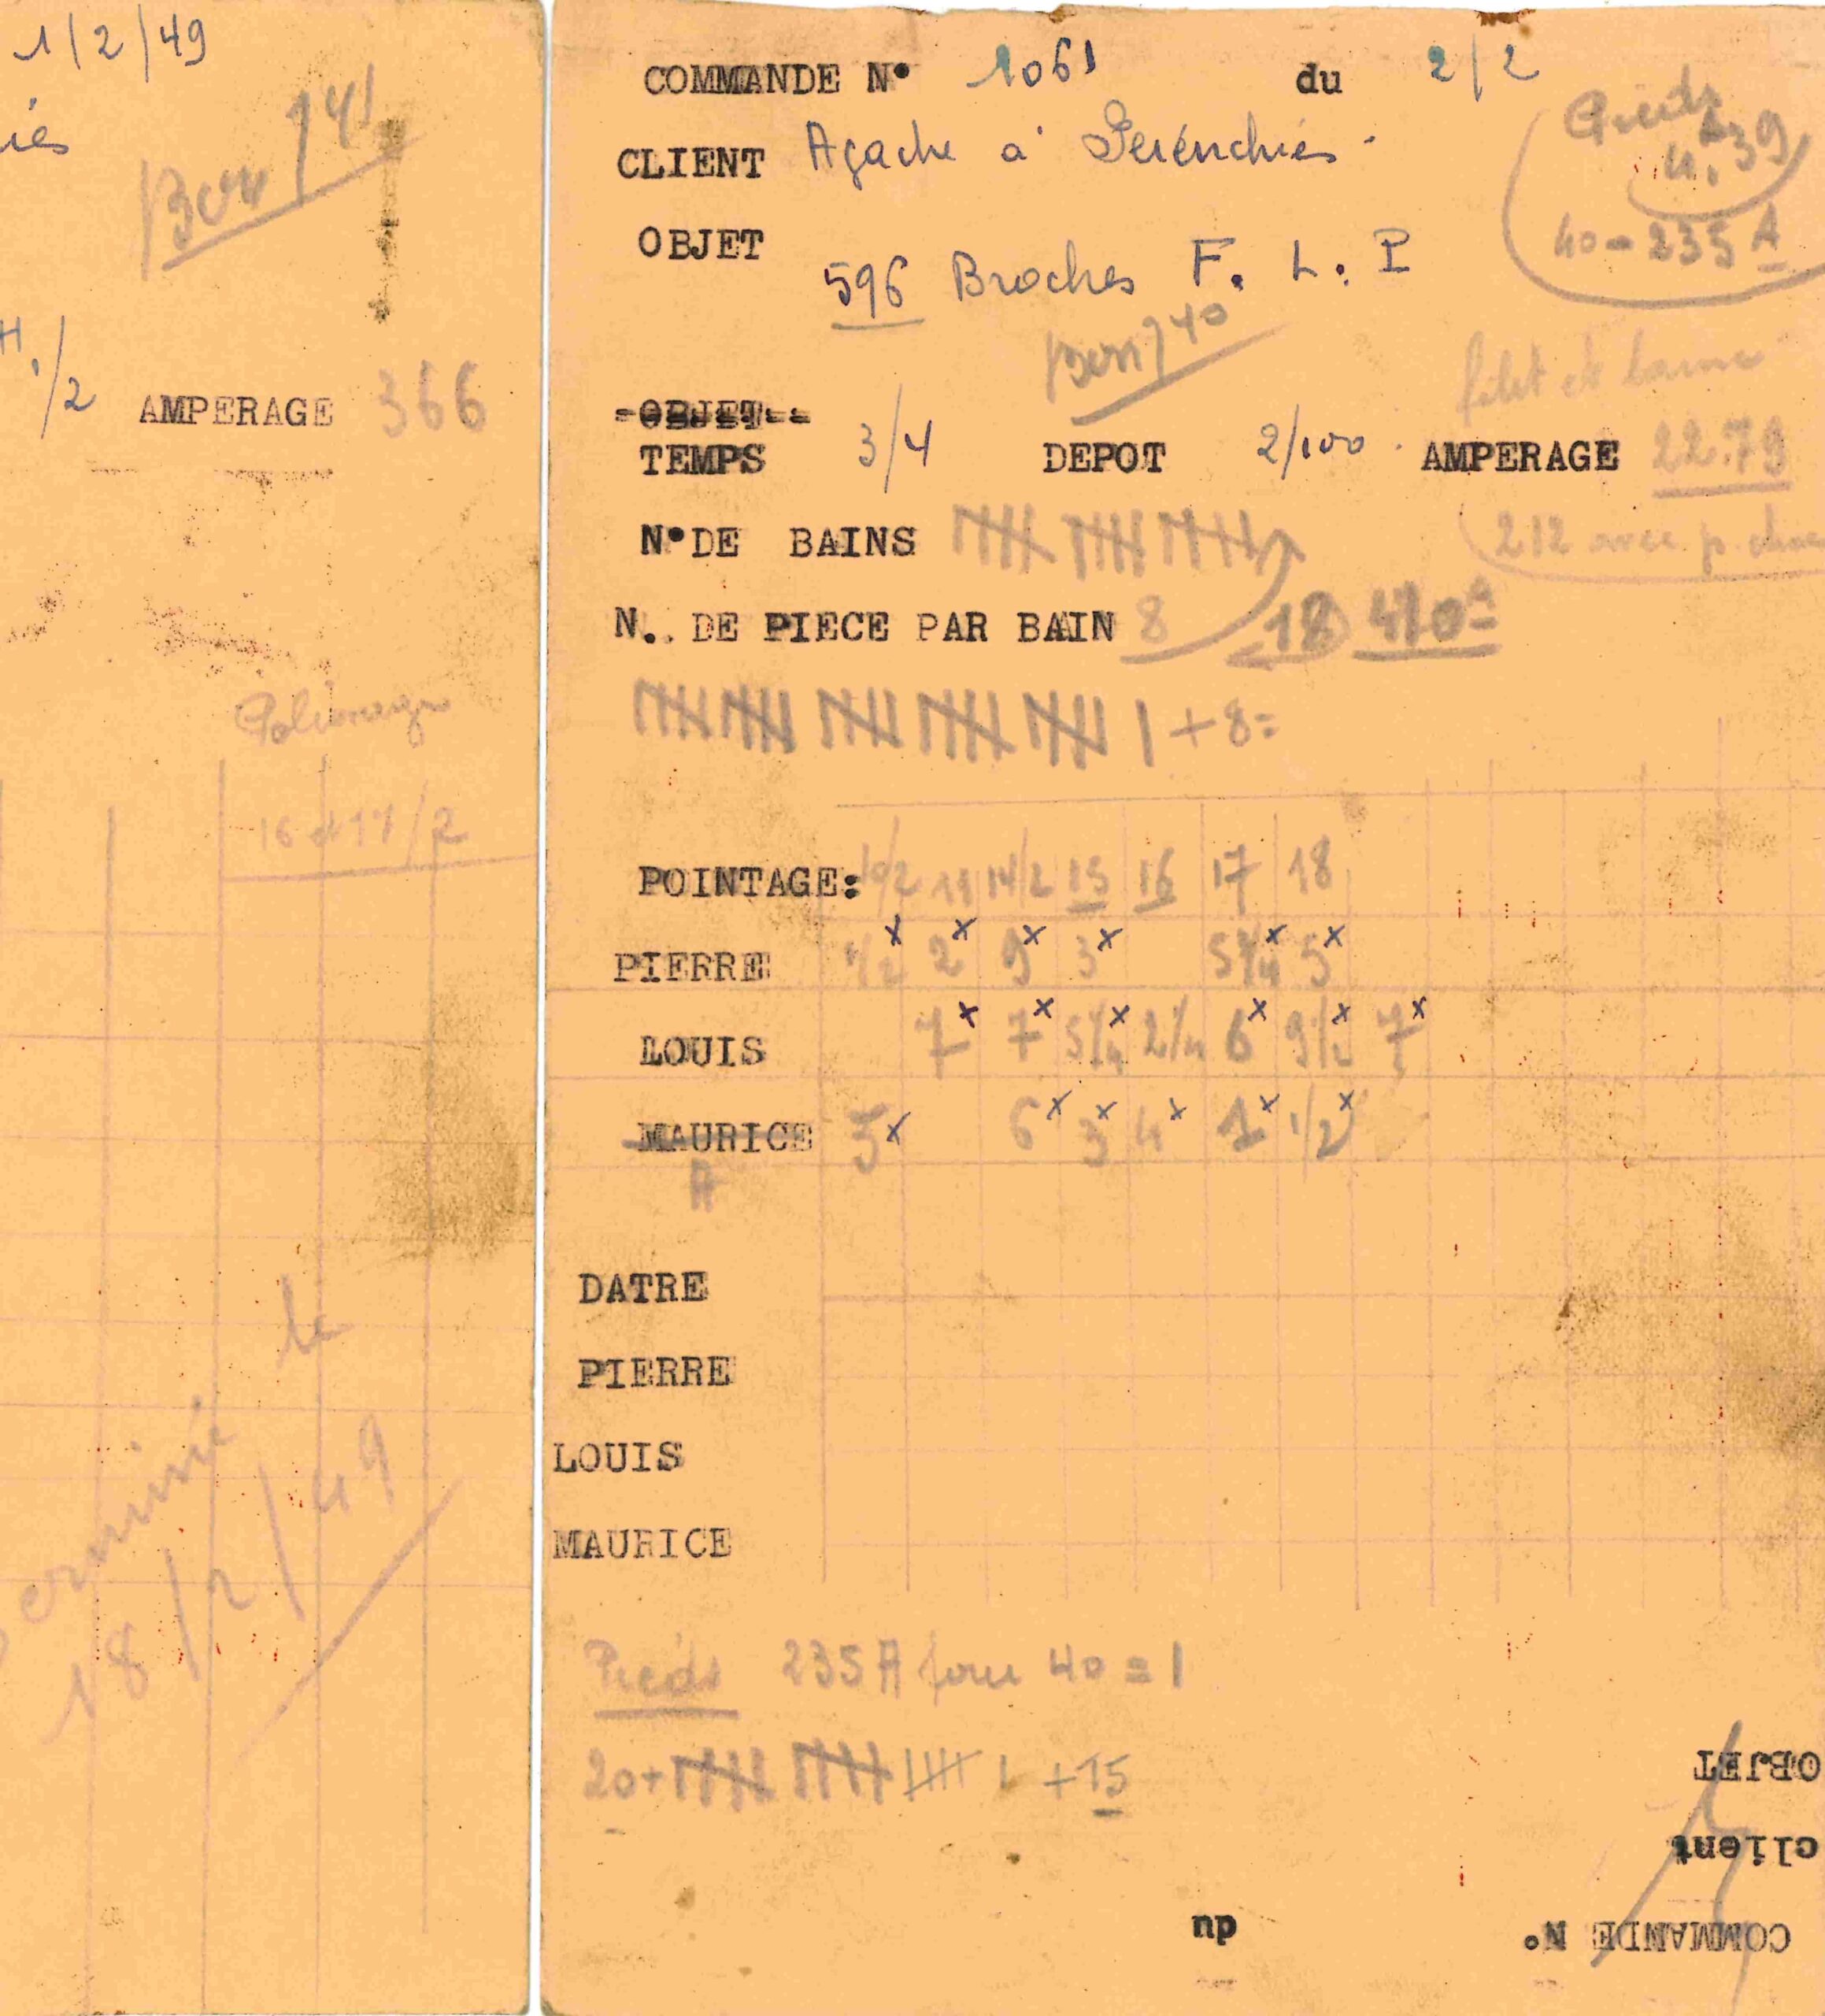 1/2/49
Bon 141
1/2 AMPERAGE 366
16 et 17/2
le
18/2/49
COMMANDE N° 1061 du 2/2
CLIENT Agache a Perénchies
OBJET
596 Broches F. L. P
Bon 140
Pieds
4.39
40 = 235 A
-OBJET--
TEMPS 3/4 DEPOT 2/100 AMPERAGE 22.79
N° DE BAINS
212 avec p.
N.. DE PIECE PAR BAIN 8 18 410A
1 + 8 =
POINTAGE: 10/2 11 14/2 15 16 17 18
PIERRE 1/2 x 2 x 9 x 3 x 5 1/4 x 5 x
LOUIS 7 x 7 x 5 1/4 x 2 1/4 6 x 9 1/2 x 7 x
MAURICE 5 x 6 x 3 x 4 x 1 x 1/2 x
A
DATRE
PIERRE
LOUIS
MAURICE
Pieds 235 A pour 40 = 1
20 + + 15
OBJET
client
COMMANDE N° du